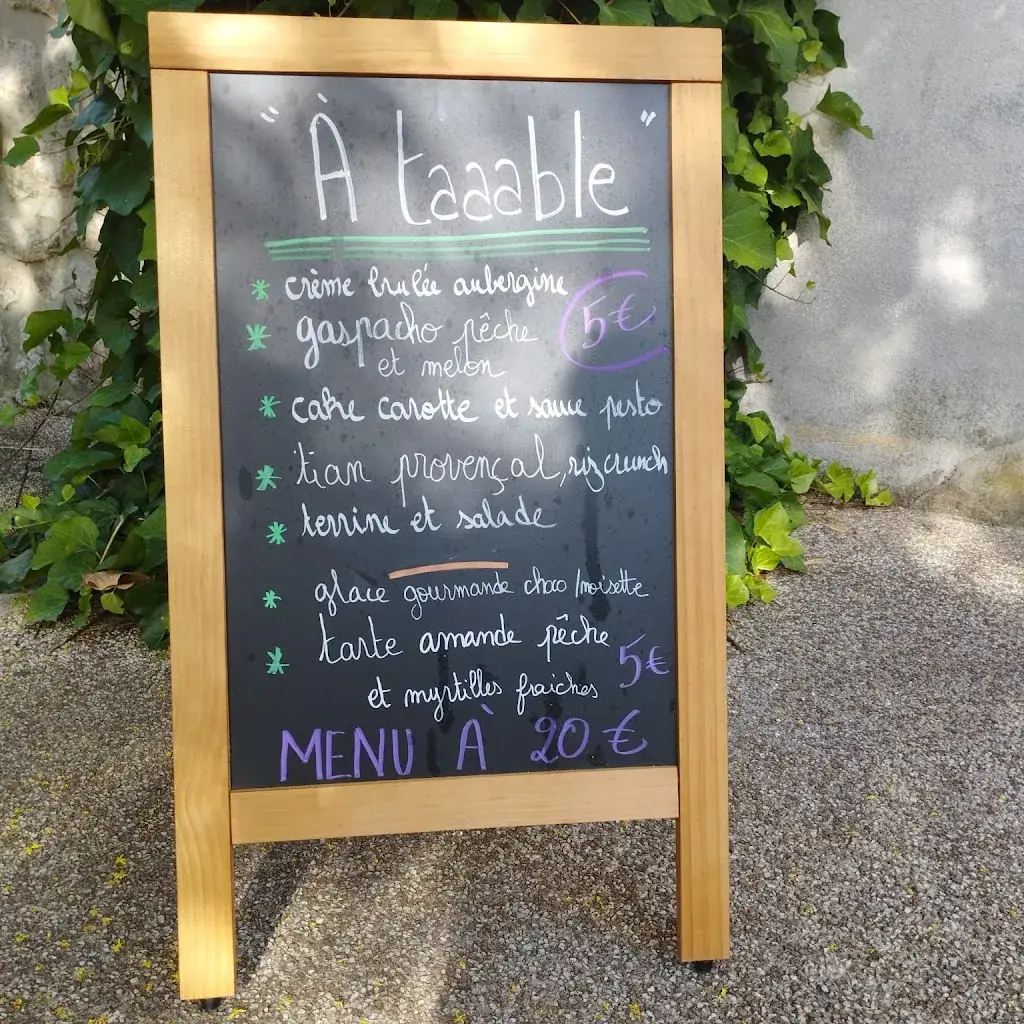 "À taaable"
crème brulée aubergine
gaspacho pêche 5€
et melon
cake carotte et sauce pesto
tian provençal, riz crunch
terrine et salade
glace gourmande choco/noisette
tarte amande pêche
et myrtilles fraiches 5€
MENU À 20€